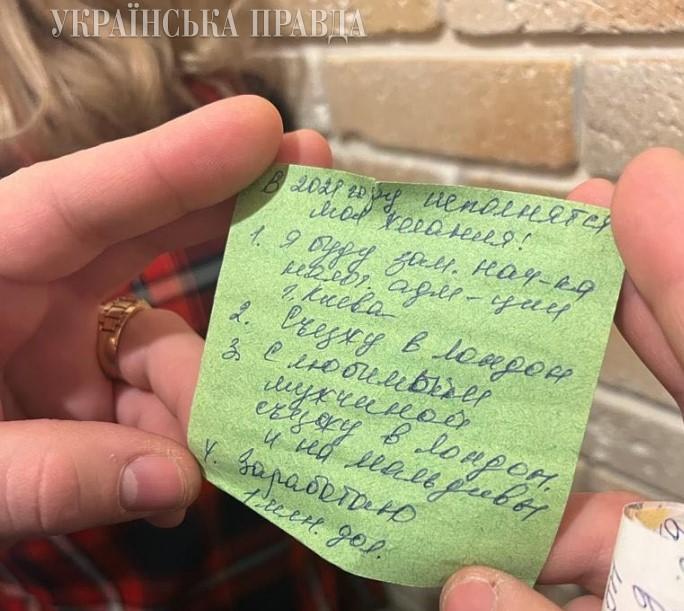 УКРАЇНСЬКА ПРАВДА
В 2021 году исполнятся
мои желания!
1. Я буду зам. нач-ка
налог. адм-ции
г. Киева
2. Съезжу в Лондон
3. С любимым
мужчиной
съезжу в Лондон
и на мальдивы
4. Заработаю
1 млн. дол.